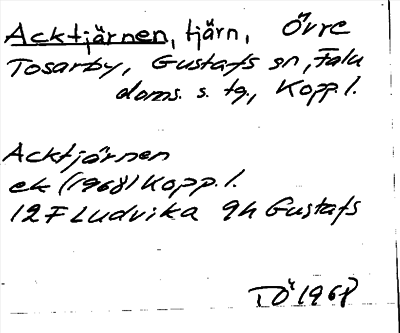 Acktjärnen, tjärn, Övre
Tosarby, Gustafs sn, Falu
doms. s. tg., Kopp. l.
Acktjärnen
ek (1968) Kopp. l.
12F Ludvika 9h Gustafs
TÖ 1968